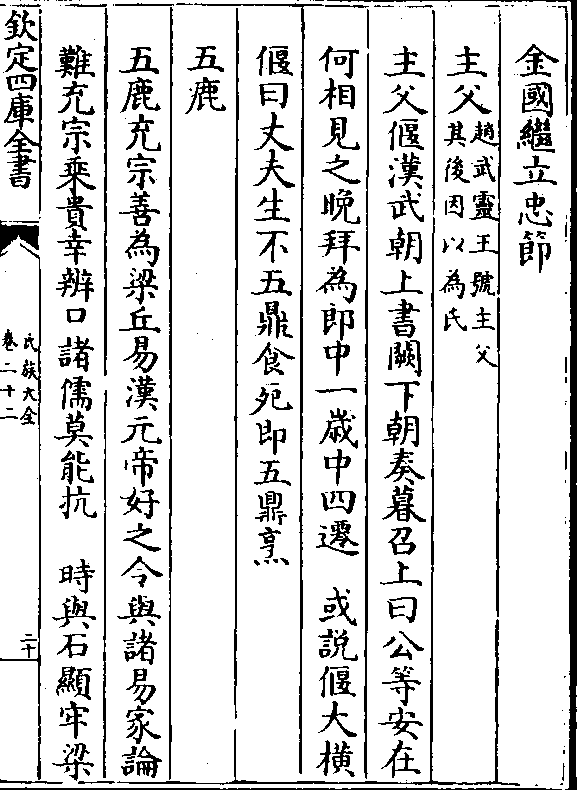 金國繼立忠節
主父趙武靈王號主父
其後因以為氏
主父偃漢武朝上書闕下朝奏暮召上曰公等安在
何相見之晚拜為郎中一歲中四遷　或說偃大橫
偃曰丈夫生不五鼎食死即五鼎烹
五鹿
五鹿充宗善為梁丘易漢元帝好之令與諸易家論
難充宗乘貴幸辨口諸儒莫能抗　時與石顯牢梁
欽定四庫全書
氏族大全
卷二十二
二十